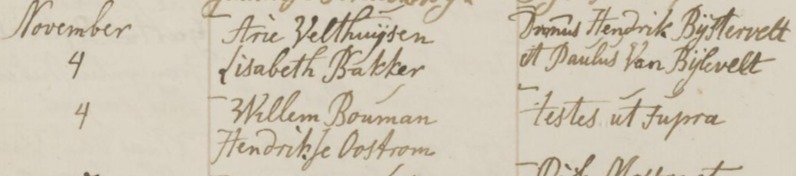 November
Arie Velthuijsen
Dmnus Hendrik Bijstervelt
4
Lisabeth Bakker
et Paulus Van Bijlevelt
4
Willem Bouman
testes ut supra
Hendrikse Oostrom